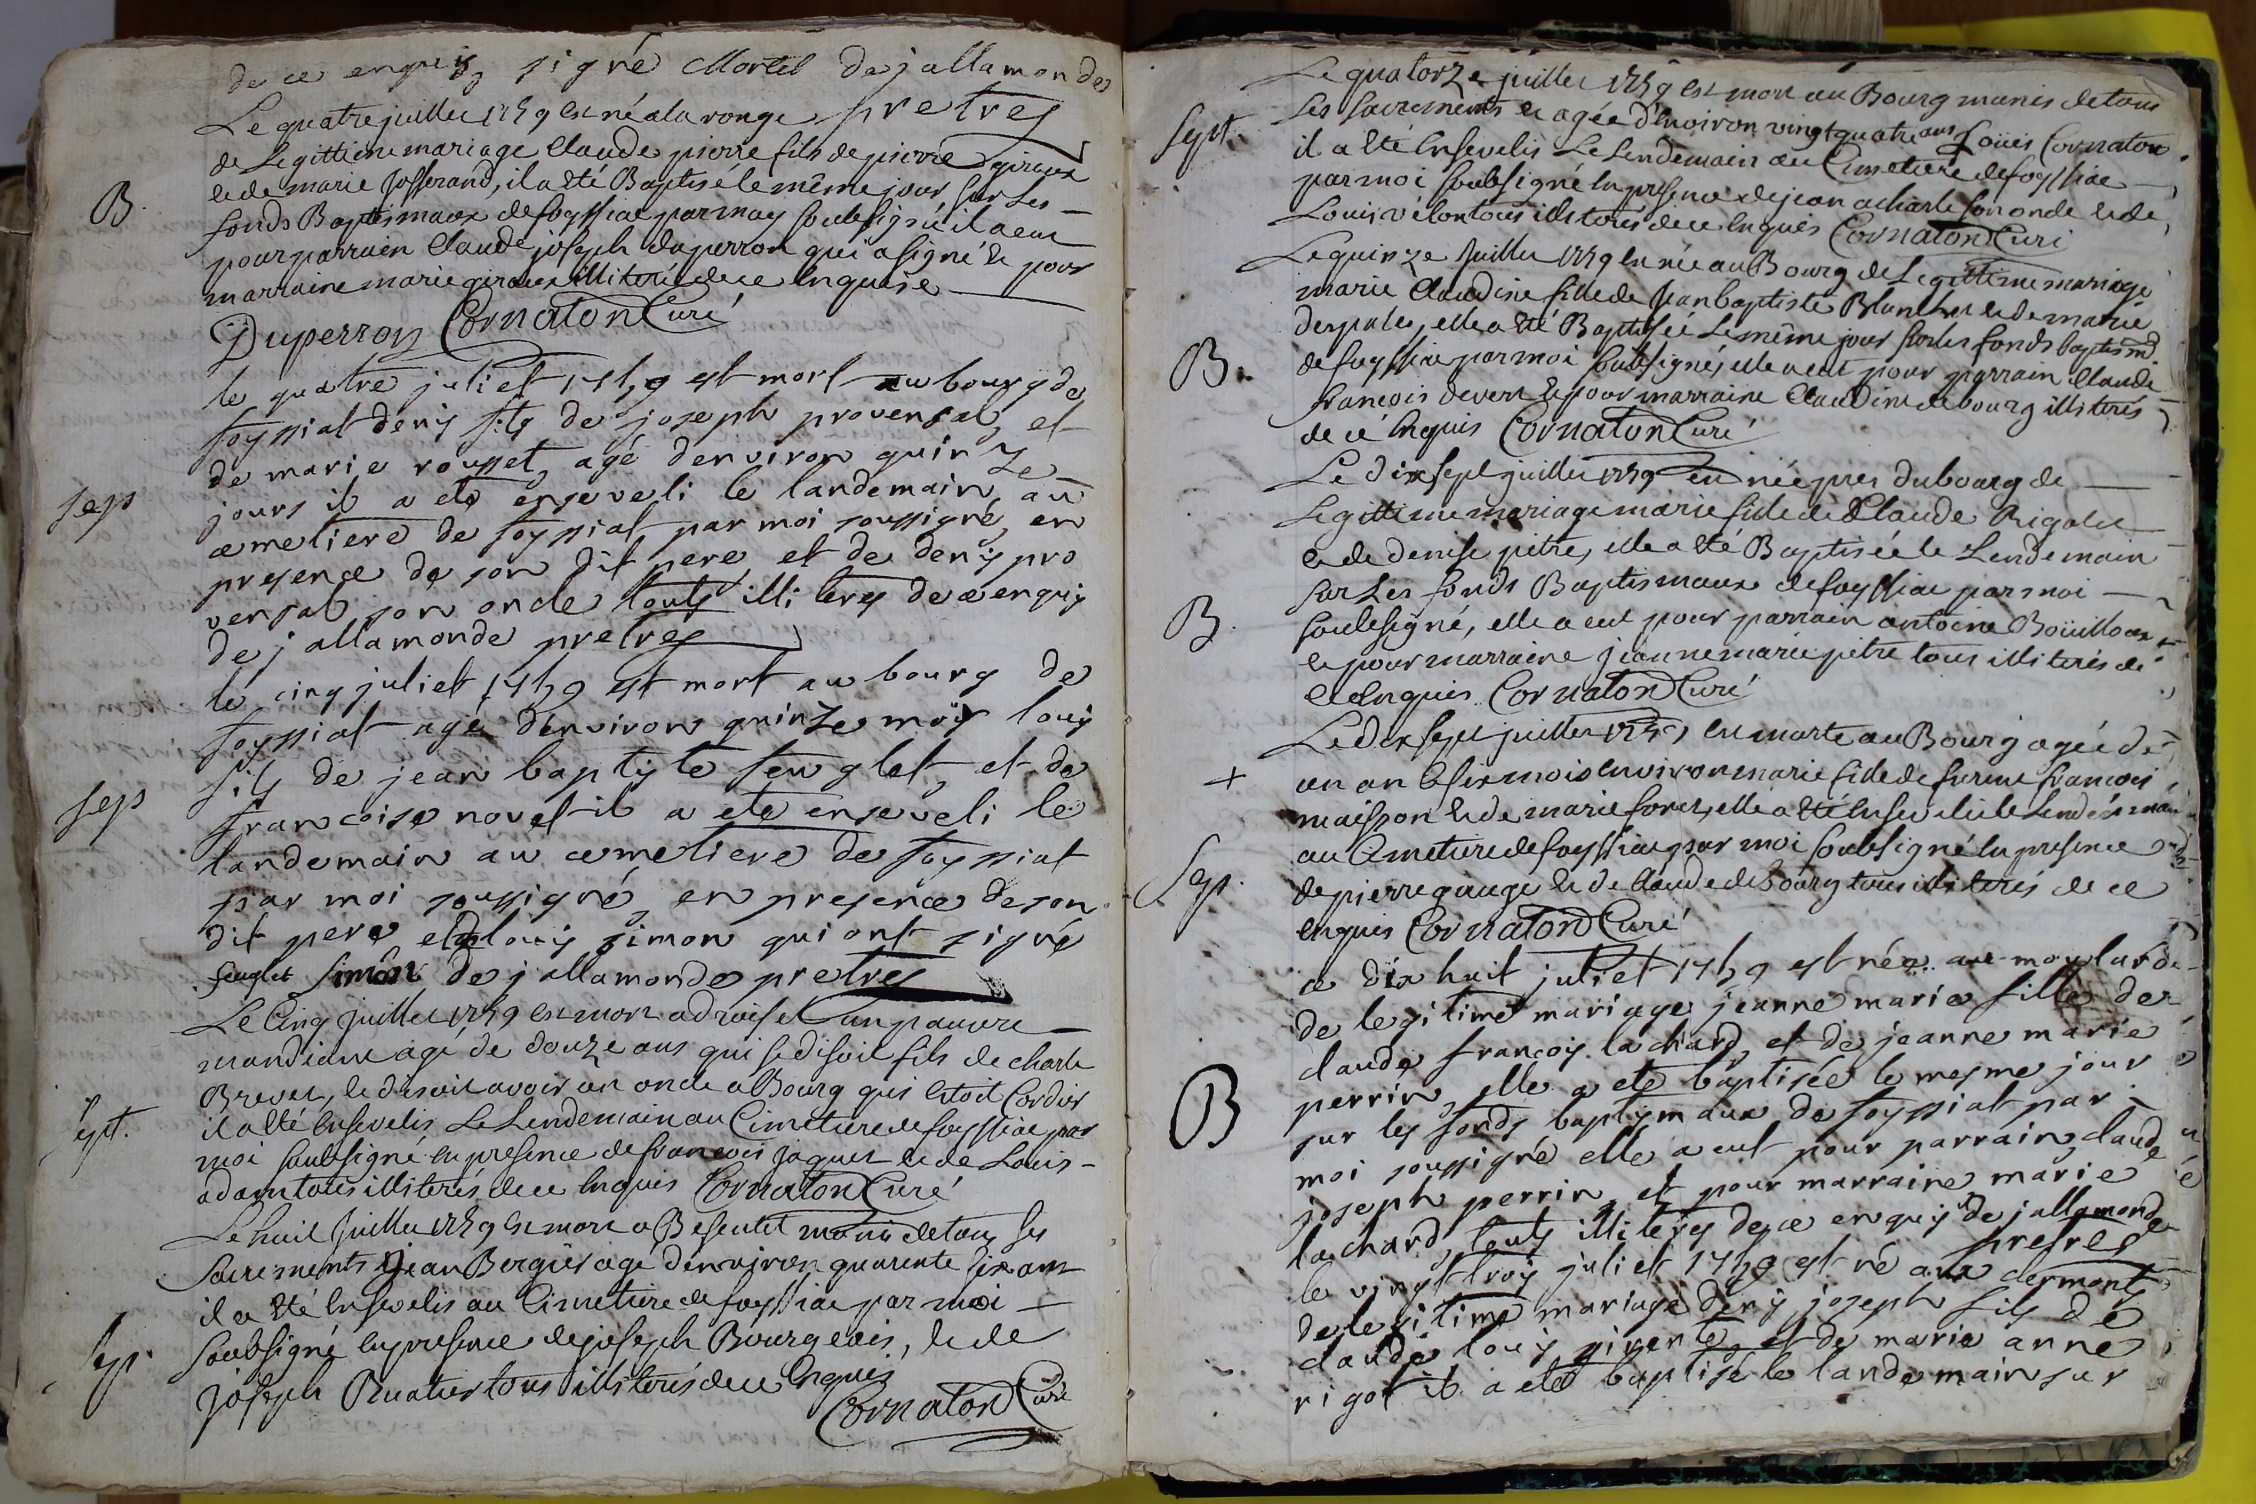 de ce enquis signé Mortel dejallamondes
Le quatre juillet 1759 est né a la ronge pretres
de Legittime mariage Claude pierre fils de pierre giroux
B.
et de marie Josserand, il a èté Baptisé le même jour sur Les
fonds Baptismaux de foyssiac par moy soubsigné il a eut
pour parrain Claude joseph duperron qui a signé et pour
marraine marie giroux illiterée de ce Enquise
Duperron Cornaton Curé
le quatre juliet 1759 est mort au bourg de
foyssiat denis fils de joseph provensal, et
de marie rousset, agé denviron quinze
Sep
jours il a eté enseveli le landemain, au
cemetiere de foyssiat par moi soussigné, en
presence de son dit pere, et de denis pro
vensal son oncle touts illiterés de ce enquis
dejallamonde pretres
le cinq juliet 1759 est mort au bourg de
foyssiat agé denviron quinze moys louis
fils de jean baptiste feuglet, et de
Sep
francoise novel il a eté enseveli le
landemain au cemetiere de foyssiat
par moi soussigné, en presence de son
dit pere et louis simon qui ont signé
feuglet Simon dejallamonde pretres
Le Cinq Juillet 1759 est mort a un pauvre
mandiant agé de douze ans qui se disoit fils de charle
Brevet, et disoit avoir un oncle a Bourg qui Estoit Cordier
Sept.
il a èté Ensevelis Le Lendemain au Cimetiere de foyssiac par
moi soubsigné en presence de francois jaquet et de Louis
adam tous illiterés de ce Enquis Cornaton Curé
Le huit Juillet 1759 Est mort a Besentet munis de tous ses
Sacrements Jean Bergier agé d'environ quarente six ans
il a èté Ensevelis au Cimetiere de foyssiac par moi
Sep.
soubsigné En presence de joseph Bourgeois, et de
joseph Ruatier tous illiterés de ce Enquis
Cornaton Curé
Le quatorze juillet 1759 est mort au Bourg munis de tous
Sept.
Les sacrements et agée d'environ vingt quatre ans Loüis Cornaton
il a èté Ensevelis Le Lendemain au Cimetiere de foyssiac
par moi soubsigné En presence de jean acharle son oncle et de
Louis vélon tous illiterés de ce Enquis Cornaton Curé
Le quinze Juillet 1759 est née au Bourg de Legittime mariage
marie Claudine fille de Jean baptiste Blanchet et de marie
despales, elle a èté Baptisée Le même jour sur les fonds baptismd.
B.
de foyssiac par moi soubsigné, elle a eut pour parrain Claude
francois devert et pour marraine Claudine de bourg illiterés
de ce Enquis Cornaton Curé
Le dix sept juillet 1759 est née pres du bourg de
Legittime mariage marie fille de Claude Rigolet
et de denise pitre, elle a èté Baptisée le Lendemain
sur Les fonds Baptismaux de foyssiac par moi
B.
soubsigné, elle a eut pour parrain antoine Boüilloux
et pour marraine jeanne marie pitre tous illiterés de
ce Enquis. Cornaton Curé
Le dix sept juillet 1759 est morte au Bourg agée de
+
un an et six mois environ marie fille de francois
maisson et de marie foret, elle a èté Ensevelie le Lendemain
au Cimetiere de foyssiac par moi soubsigné En presence
Sep.
de pierre gauge et de Claude de Bourg tous illiterés de ce
enquis Cornaton Curé
ce dix huit juliet 1759 est née au moulard
de legitime mariage jeanne marie fille de
claude francois lachard, et de jeanne marie
B
perrin, elle a eté baptisée le mesme jour
sur les fonds baptismaux de foyssiat par
moi soussigné elle a eut pour parrain claude
joseph perrin, et pour marraine marie
lachard, touts illiterés de ce enquis dejallamonde
pretres
le vingt trois juliet 1759 est né aux dermonts
de legitime mariage denis joseph fils de
claude louis pirente, et de marie anne
rigol il a eté baptisé le landemain sur